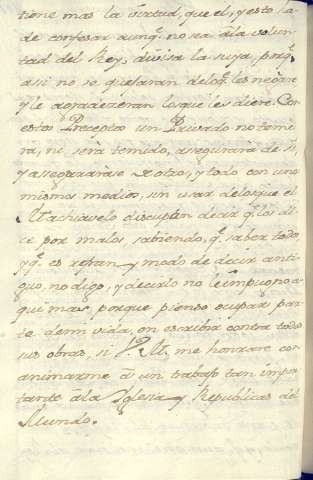 tiene mas la virtud, que el, y esto ha
de confesar aunq.^e no sea â la volun
tad del Rey, divisa la suya, porq.^e
asi no se quejaran delo q.^e les negare
y le agradezeran lo que les diere. Con
estos Preceptos un Privado no teme
ra, ni sera temido, asegurara de si,
y asegurarase de otro, y todo con unos
mismos medios, sin usar de los que el
Machiavelo disculpan decir q.^e los di
ce por malos, sabiendo, q.^e saber todo
y q.^e es refran y modo de decir anti
guo, no digo, y decirlo no le impugno a
qui mas, porque pienso ocupar par
te de mi vida, en escribir contra todas
sus obras, si V. M. me honrare con
animarme â un trabajo tan impor
tante â la Iglesia y Republicas del
Mundo.